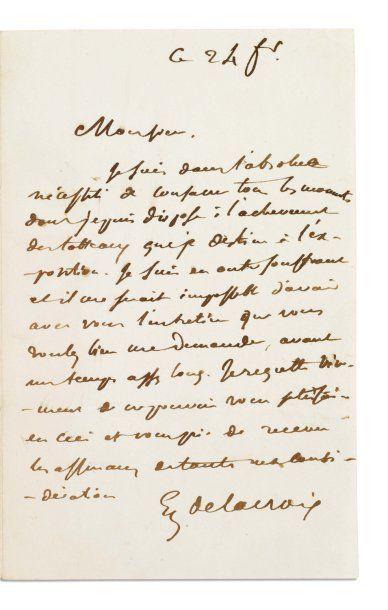 Ce 24 fr.
Monsieur,
Je suis dans l'absolue
nécessité de conserver tous les moments
dont je puis disposer à l'achèvement
des tableaux que je destine à l'ex-
-position. Je suis en outre souffrant
et il me serait impossible d'avoir
avec vous l'entretien que vous
voulez bien me demander, avant
un temps assez long. Je regrette vive-
-ment de ne pouvoir vous satisfaire
en ceci et vous prie de recevoir
les assurances de toute ma consi-
-dération
Eug Delacroix